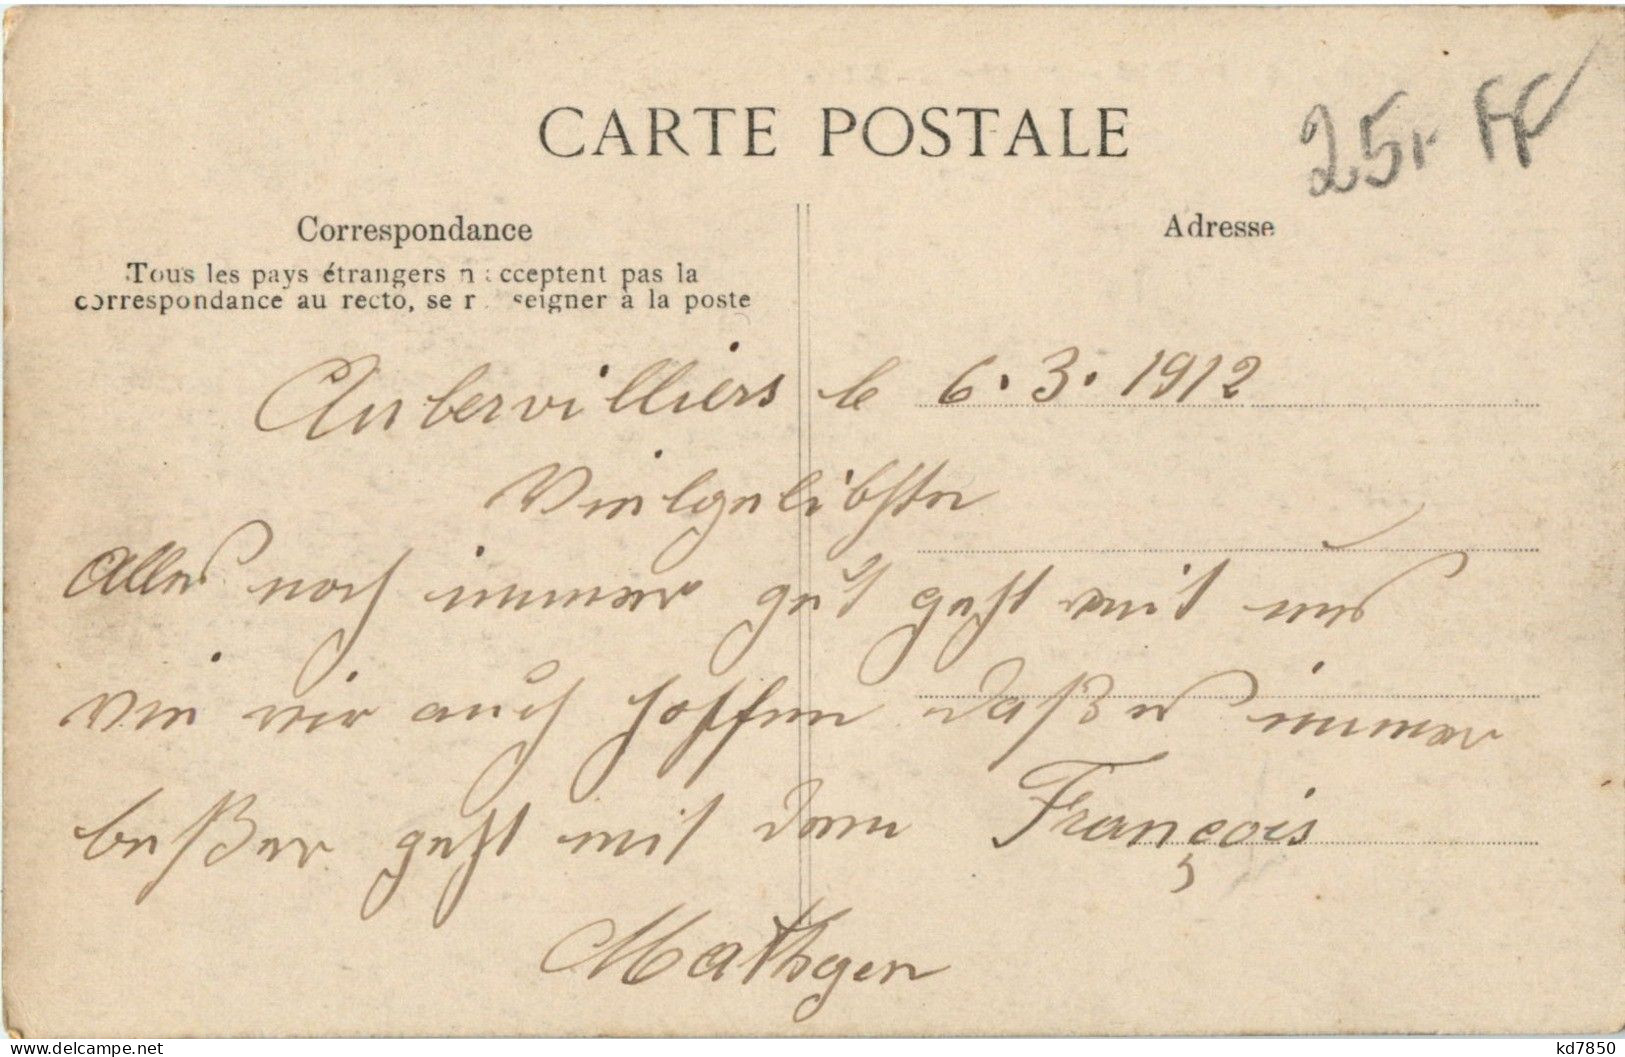 CARTE POSTALE
25r FF
Correspondance
Adresse
Tous les pays étrangers n'acceptent pas la
correspondance au recto, se renseigner à la poste
Aubervilliers le 6.3.1912
Vielgelibsten
Alles noch immer gut geht mit uns
wir auch hoffen daß es immer
beßer geht mit dem François
Mathgen
delcampe.com
kd7850